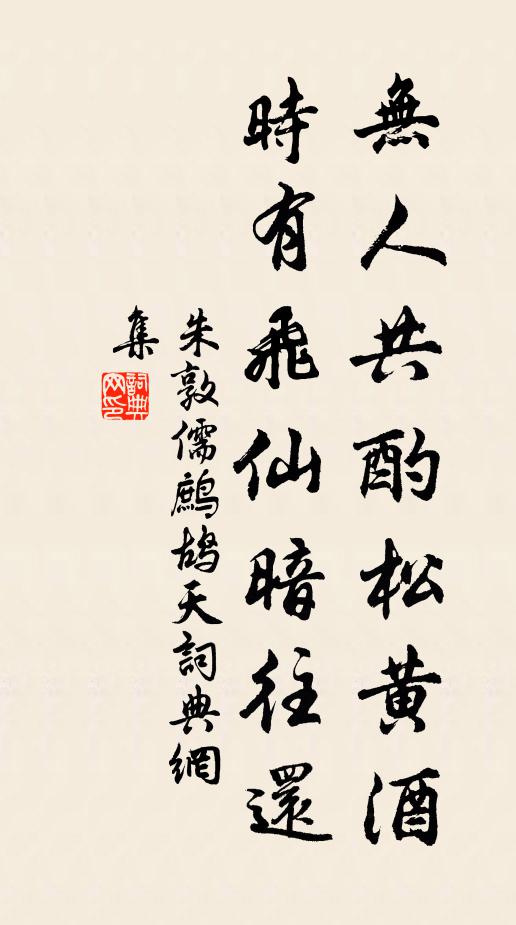 無人共酌松黄酒
時有飛仙暗往還
朱敦儒鷓鴣天詞典網
集
詞典
网印